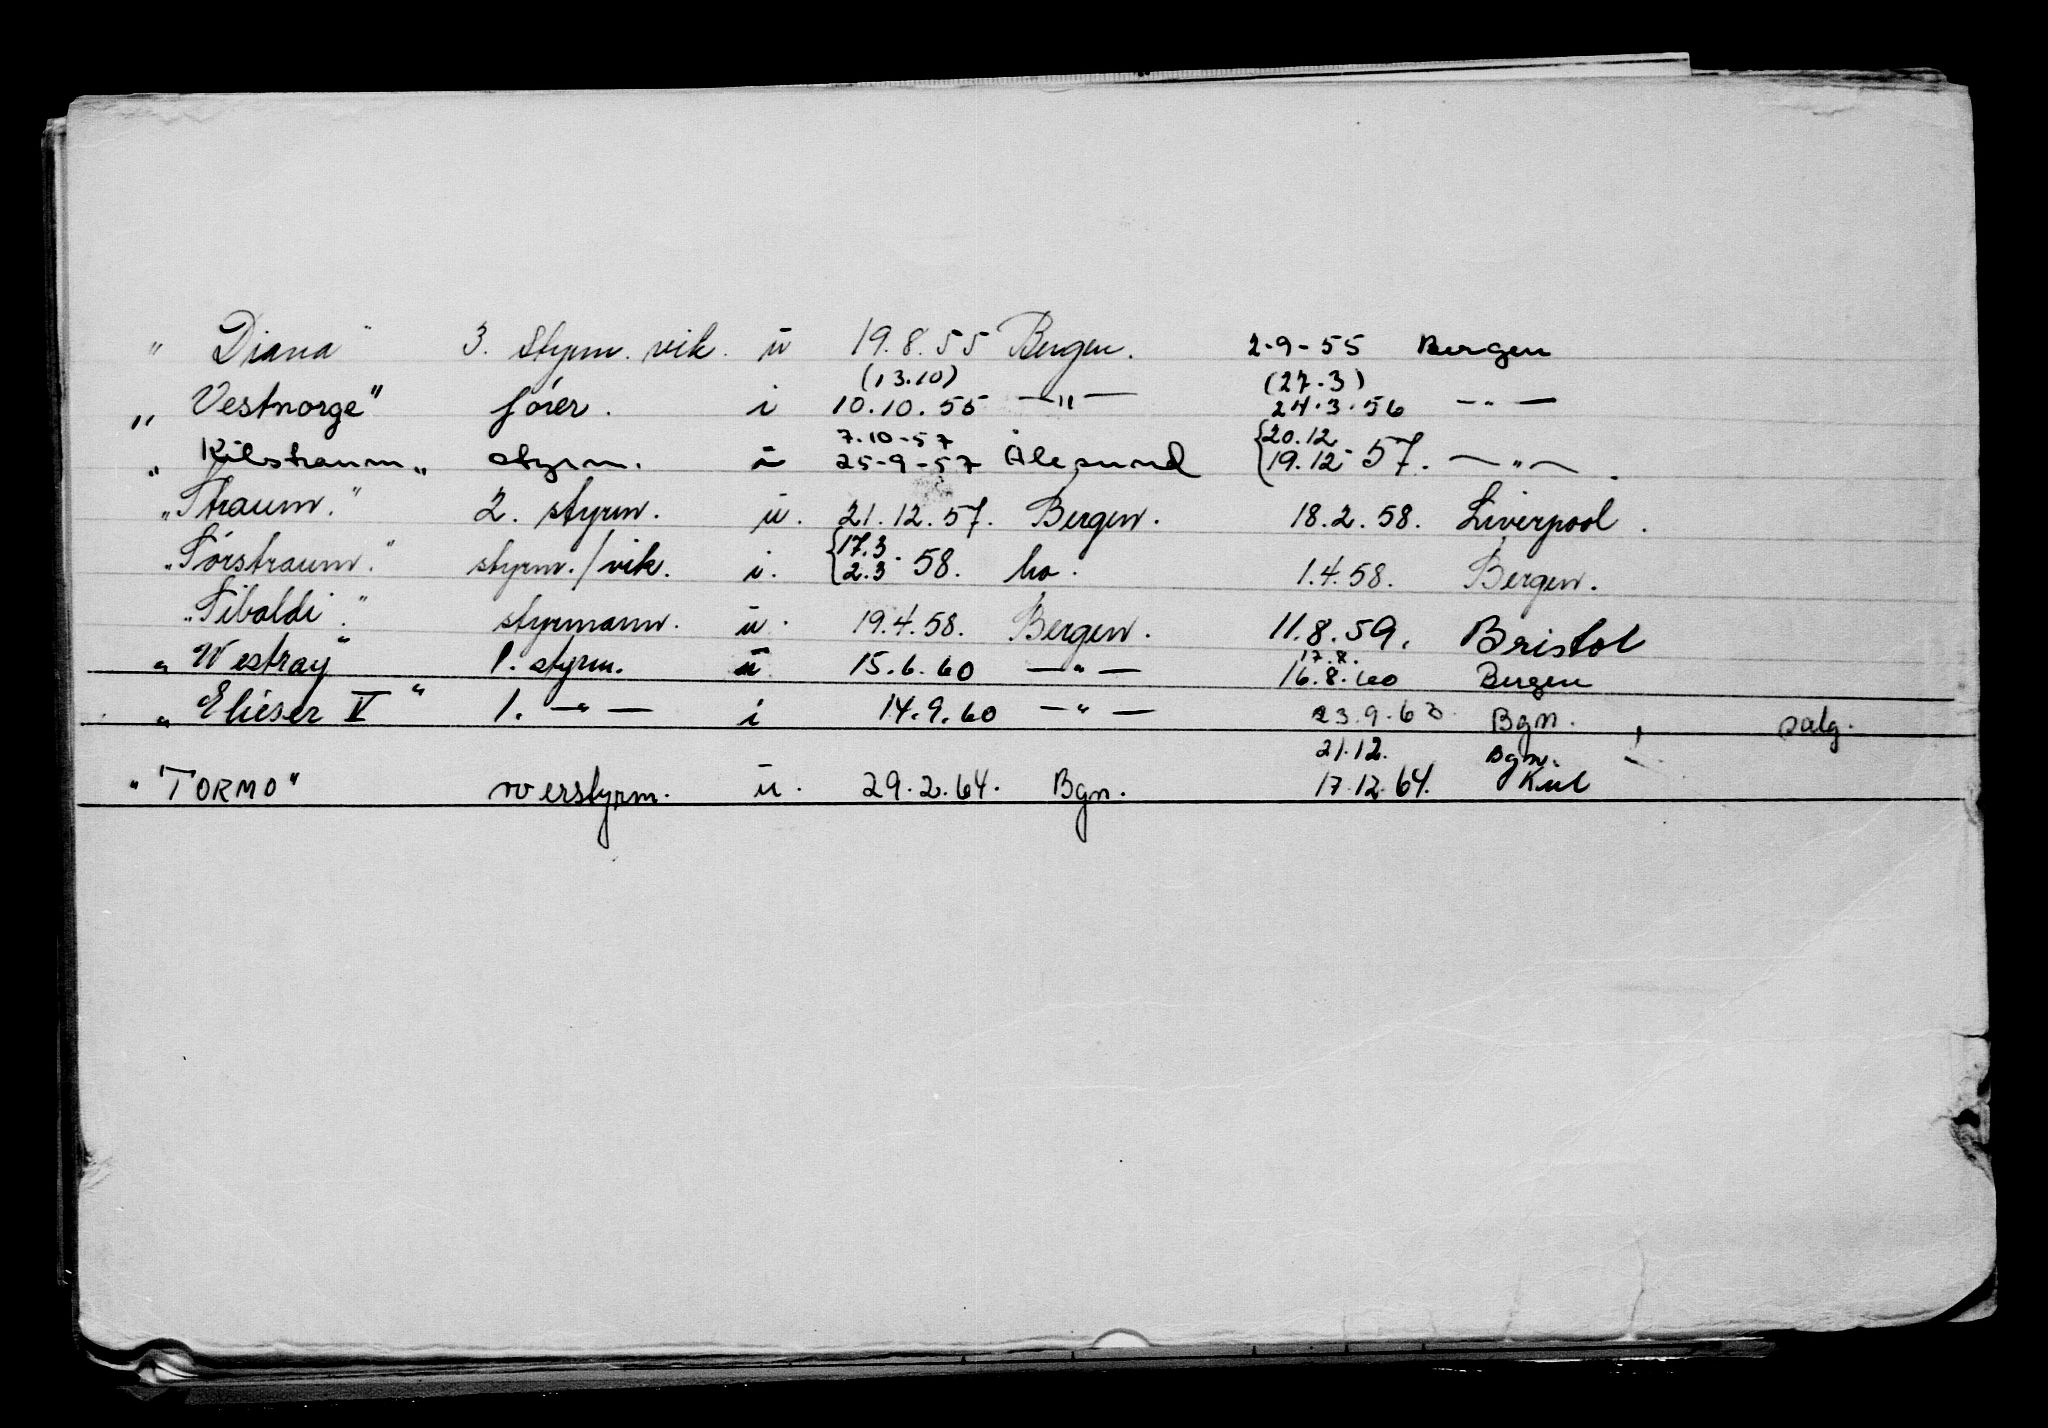 " Diana" 3. styrm. vik. u 19.8.55 Bergen. 2-9-55 Bergen
(13.10) (27.3)
„ Vestnorge" fører. i 10.10.55 —"— 24.3.56 —"—
7.10-57 {20.12
„ Kilstraum„ styrm. u 25-9-57 Ålesund {19.12 57. —"—.
„Straum." 2. styrm. u. 21.12.57. Bergen. 18.2.58. Liverpool.
{17.3
„Sørstraum." styrm./vik. i. {2.3 58. 1.4.58. Bergen.
„Sibaldi." styrmann. u. 19.4.58. Bergen. 11.8.59. Bristol
17.8.
„ Westray" 1. styrm. u. 15.6.60 —"— 16.8.60 Bergen
„ Elieser V" 1. —"— i 14.9.60 —"— 23.9.63. Bgn. salg.
21.12. Bgn. -
"TORMO" overstyrm. u. 29.2.64. Bgn. 17.12.64.